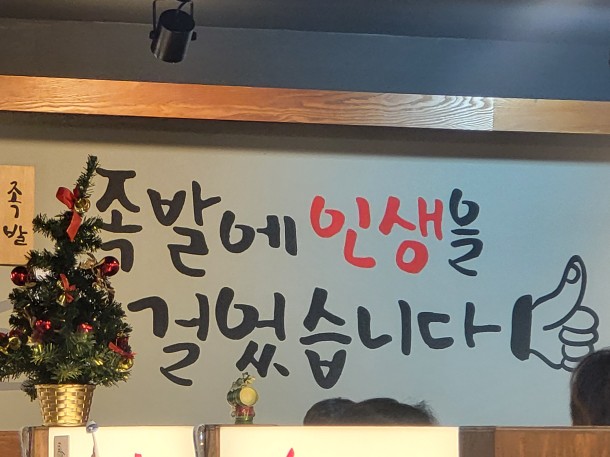 족발
족발에 인생을
걸었습니다